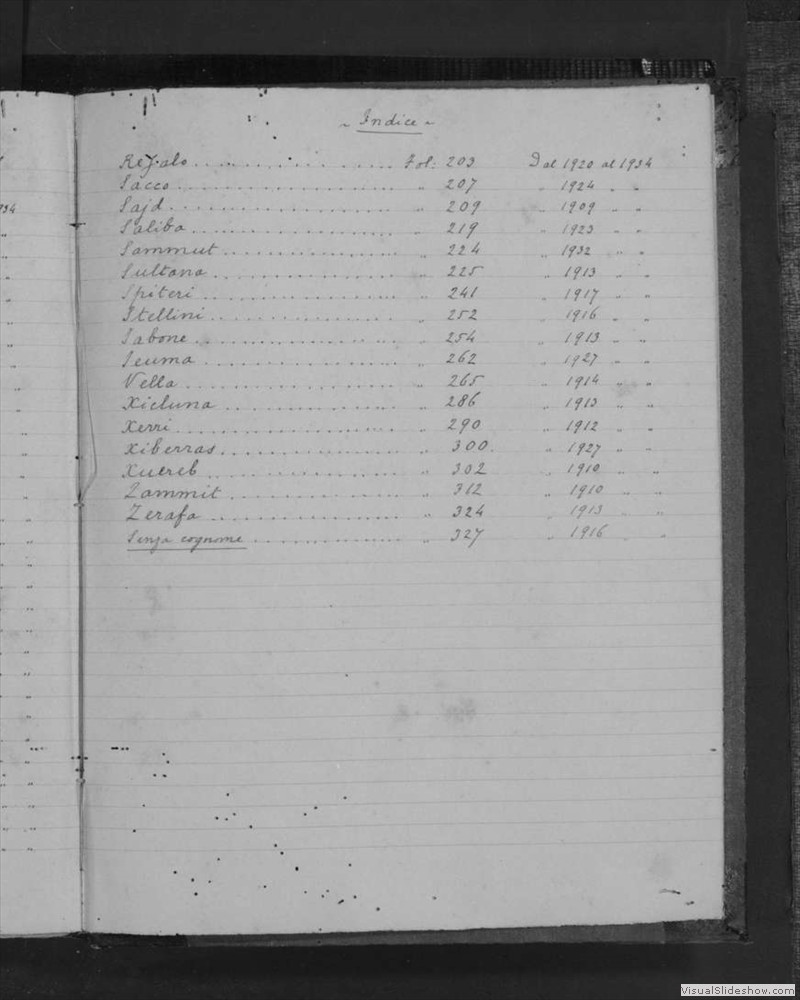 ~ Indice ~
Refalo .................... Fol: 203 Dal 1920 al 1934
Sacco .................... " 207 " 1924 " "
Sajd .................... " 209 " 1909 " "
Saliba .................... " 219 " 1923 " "
Sammut .................... " 224 " 1932 " "
Sultana .................... " 225 " 1913 " "
Spiteri .................... " 241 " 1917 " "
Stellini .................... " 252 " 1916 " "
Sabone .................... " 254 " 1913 " "
Seuma .................... " 262 " 1927 " "
Vella .................... " 265 " 1914 " "
Xicluna .................... " 286 " 1913 " "
Xerri .................... " 290 " 1912 " "
Xiberras .................... " 300. " 1927 " "
Xuereb .................... " 302 " 1910 " "
Zammit .................... " 312 " 1910 " "
Zerafa .................... " 324 " 1913 " "
Senza cognome .................... " 327 " 1916 " "
VisualSlideshow.com